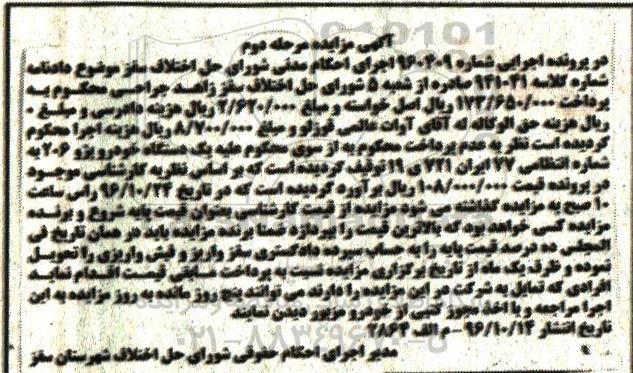 آگهی مزایده مرحله دوم
در پرونده اجرایی شماره ۹۶۰۲۰۹ اجرای احکام مدنی شورای حل اختلاف سقز موضوع دادنامه
شماره کلاسه ۹۳۱۰۳۱ صادره از شعبه ۵ شورای حل اختلاف سقز زاهد جراحی محکوم به
پرداخت ۱۷۳/۶۵۰/۰۰۰ ریال اصل خواسته و مبلغ ۲/۶۲۰/۰۰۰ ریال هزینه دادرسی و مبلغ ۰
ریال هزینه حق الوکاله له آقای آوات و مبلغ ۸/۷۰۰/۰۰۰ ریال هزینه اجرا محکوم
گردیده است نظر به عدم پرداخت محکوم به از سوی محکوم علیه یک دستگاه خودرو پژو ۲۰۶ به
شماره انتظامی ۳۷ ایران ۱۹ توقیف گردیده است که بر اساس نظریه کارشناسی موجود
در پرونده قیمت ۱۰۸/۰۰۰/۰۰۰ ریال برآورد گردیده است که در تاریخ ۹۶/۱۰/۲۴ راس ساعت
۱۰ صبح به مزایده گذاشته می شود مزایده از قیمت کارشناسی بعنوان قیمت پایه شروع و برنده
مزایده کسی خواهد بود که بالاترین قیمت را بپردازد ضمنا برنده مزایده باید در همان تاریخ فی
المجلس ده درصد قیمت پایه را به حساب سپرده دادگستری سقز واریز و فیش واریزی را تحویل
نموده و ظرف یک ماه از تاریخ برگزاری مزایده نسبت به پرداخت مابقی قیمت اقدام نماید
افرادی که تمایل به شرکت در این مزایده را دارند می توانند پنج روز مانده به روز مزایده به این
اجرا مراجعه و با اخذ مجوز کتبی از خودرو مزبور دیدن نمایند
تاریخ انتشار ۹۶/۱۰/۱۴ - م الف ۲۸۶۴
۰۲۱-۸۸۳۴۹۶۷۰
مدیر اجرای احکام حقوقی شورای حل اختلاف شهرستان سقز